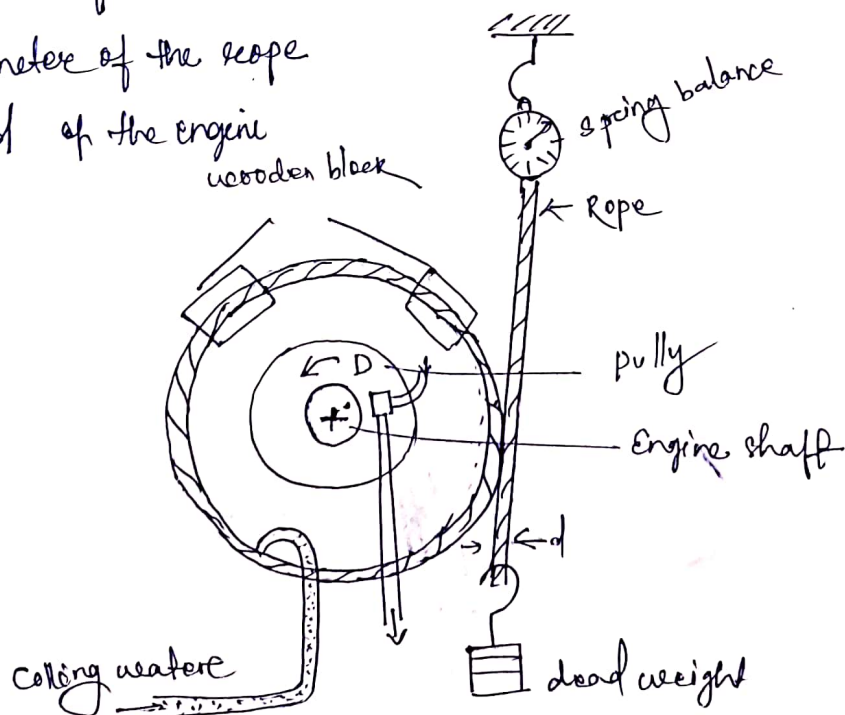 meter of the rope
of the engine
wooden block
spring balance
Rope
D
pully
Engine shaft
d
colling watere
dead weight